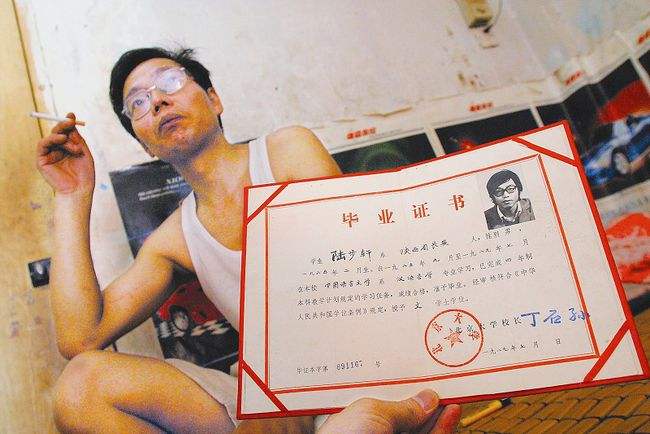 毕业证书
学生 陆步轩 系 陕西省长安 人,性别 男,
一九六五年 二 月生。在一九八五年 九 月至一九八九年 七 月
在本校 中国语言文学 系 汉语言学 专业学习,已完成 四 年制
本科教学计划规定的学习任务,成绩合格,准予毕业。经审核符合《中华
人民共和国学位条例》规定,授予 文 学士学位。
北京大学校长 丁石孙
一九八九年 七 月 日
毕证本字第 891167 号